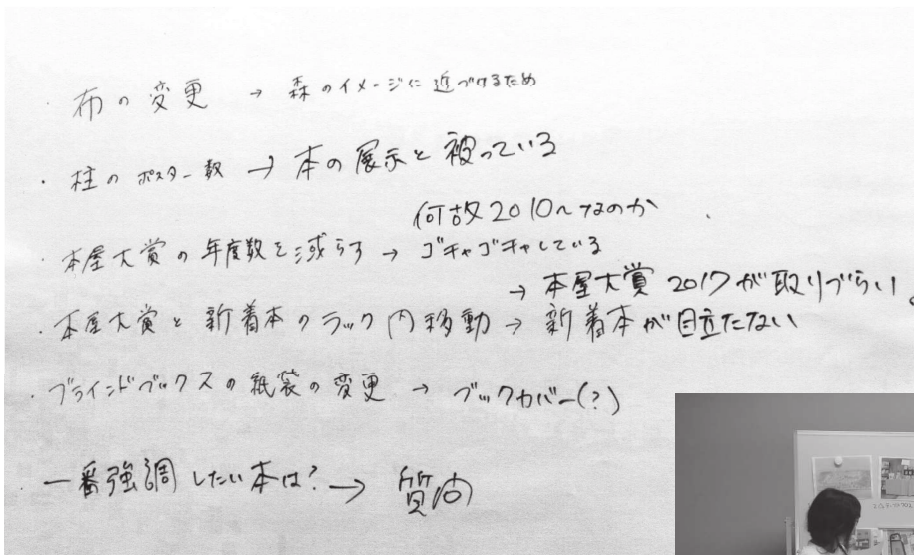 ・布の変更 → 森のイメージに近づけるため
・柱のポスター数 → 本の展示と被っている
何故2010〜なのか
・本屋大賞の年度数を減らす → ゴチャゴチャしている
→ 本屋大賞2017が取りづらい。
・本屋大賞と新着本のラック内移動 → 新着本が目立たない
・ブラインドブックスの紙袋の変更 → ブックカバー(?)
一番強調したい本は? → 質問